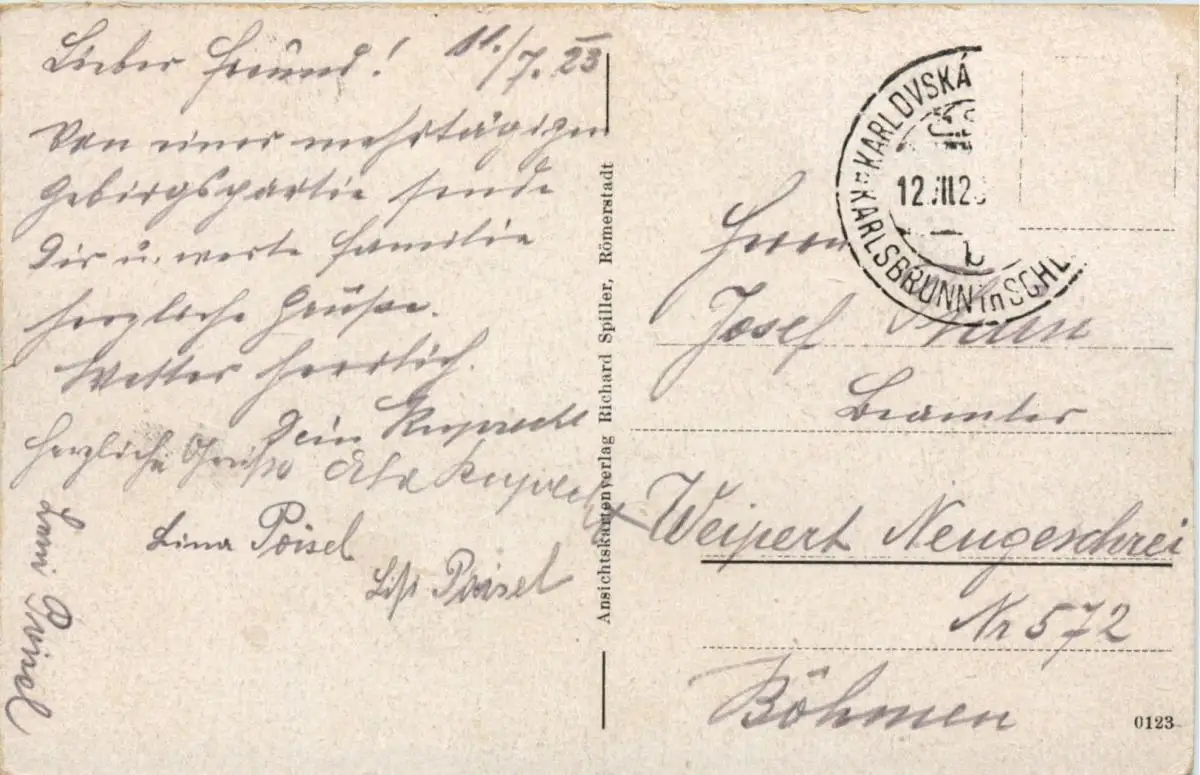 Lieber Freund! 11./7. 23
Von einer mehrtägigen
Gebirgspartie sende
Dir u. werte Familie
herzliche Grüße.
Wetter herrlich.
Dein Ruprecht
Herzliche Grüße Ruprecht
Lina Poisel
Poisel
Poisel
Ansichtskartenverlag Richard Spiller, Römerstadt
KARLOVSKÁ
12.VII.2
KARLSBRUNN in SCHL
Herrn
Josef
Beamter
Weipert Neugeschrei
Nr 572
Böhmen
0123